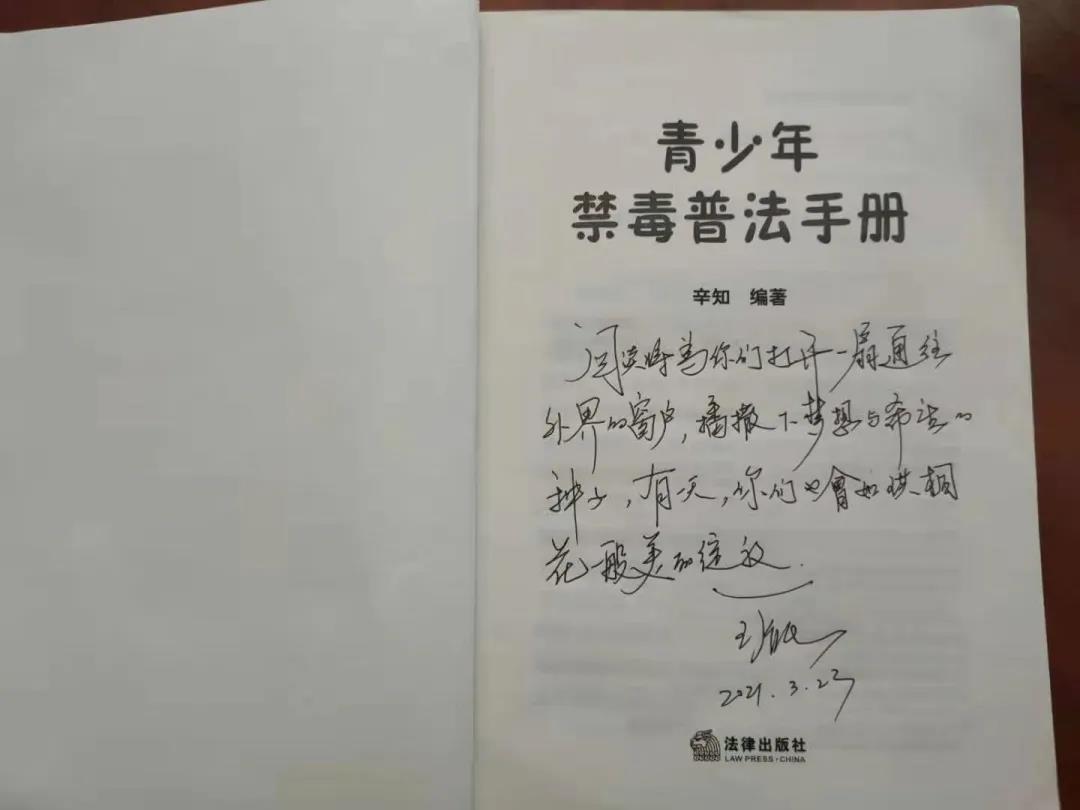 青少年
禁毒普法手册
辛知 编著
阅读将为你们打开一扇通往
外界的窗户,播撒下梦想与希望的
种子,有一天,你们也會如珙桐
花一般美丽绽放.
2021.3.23
法律出版社
LAW PRESS·CHINA